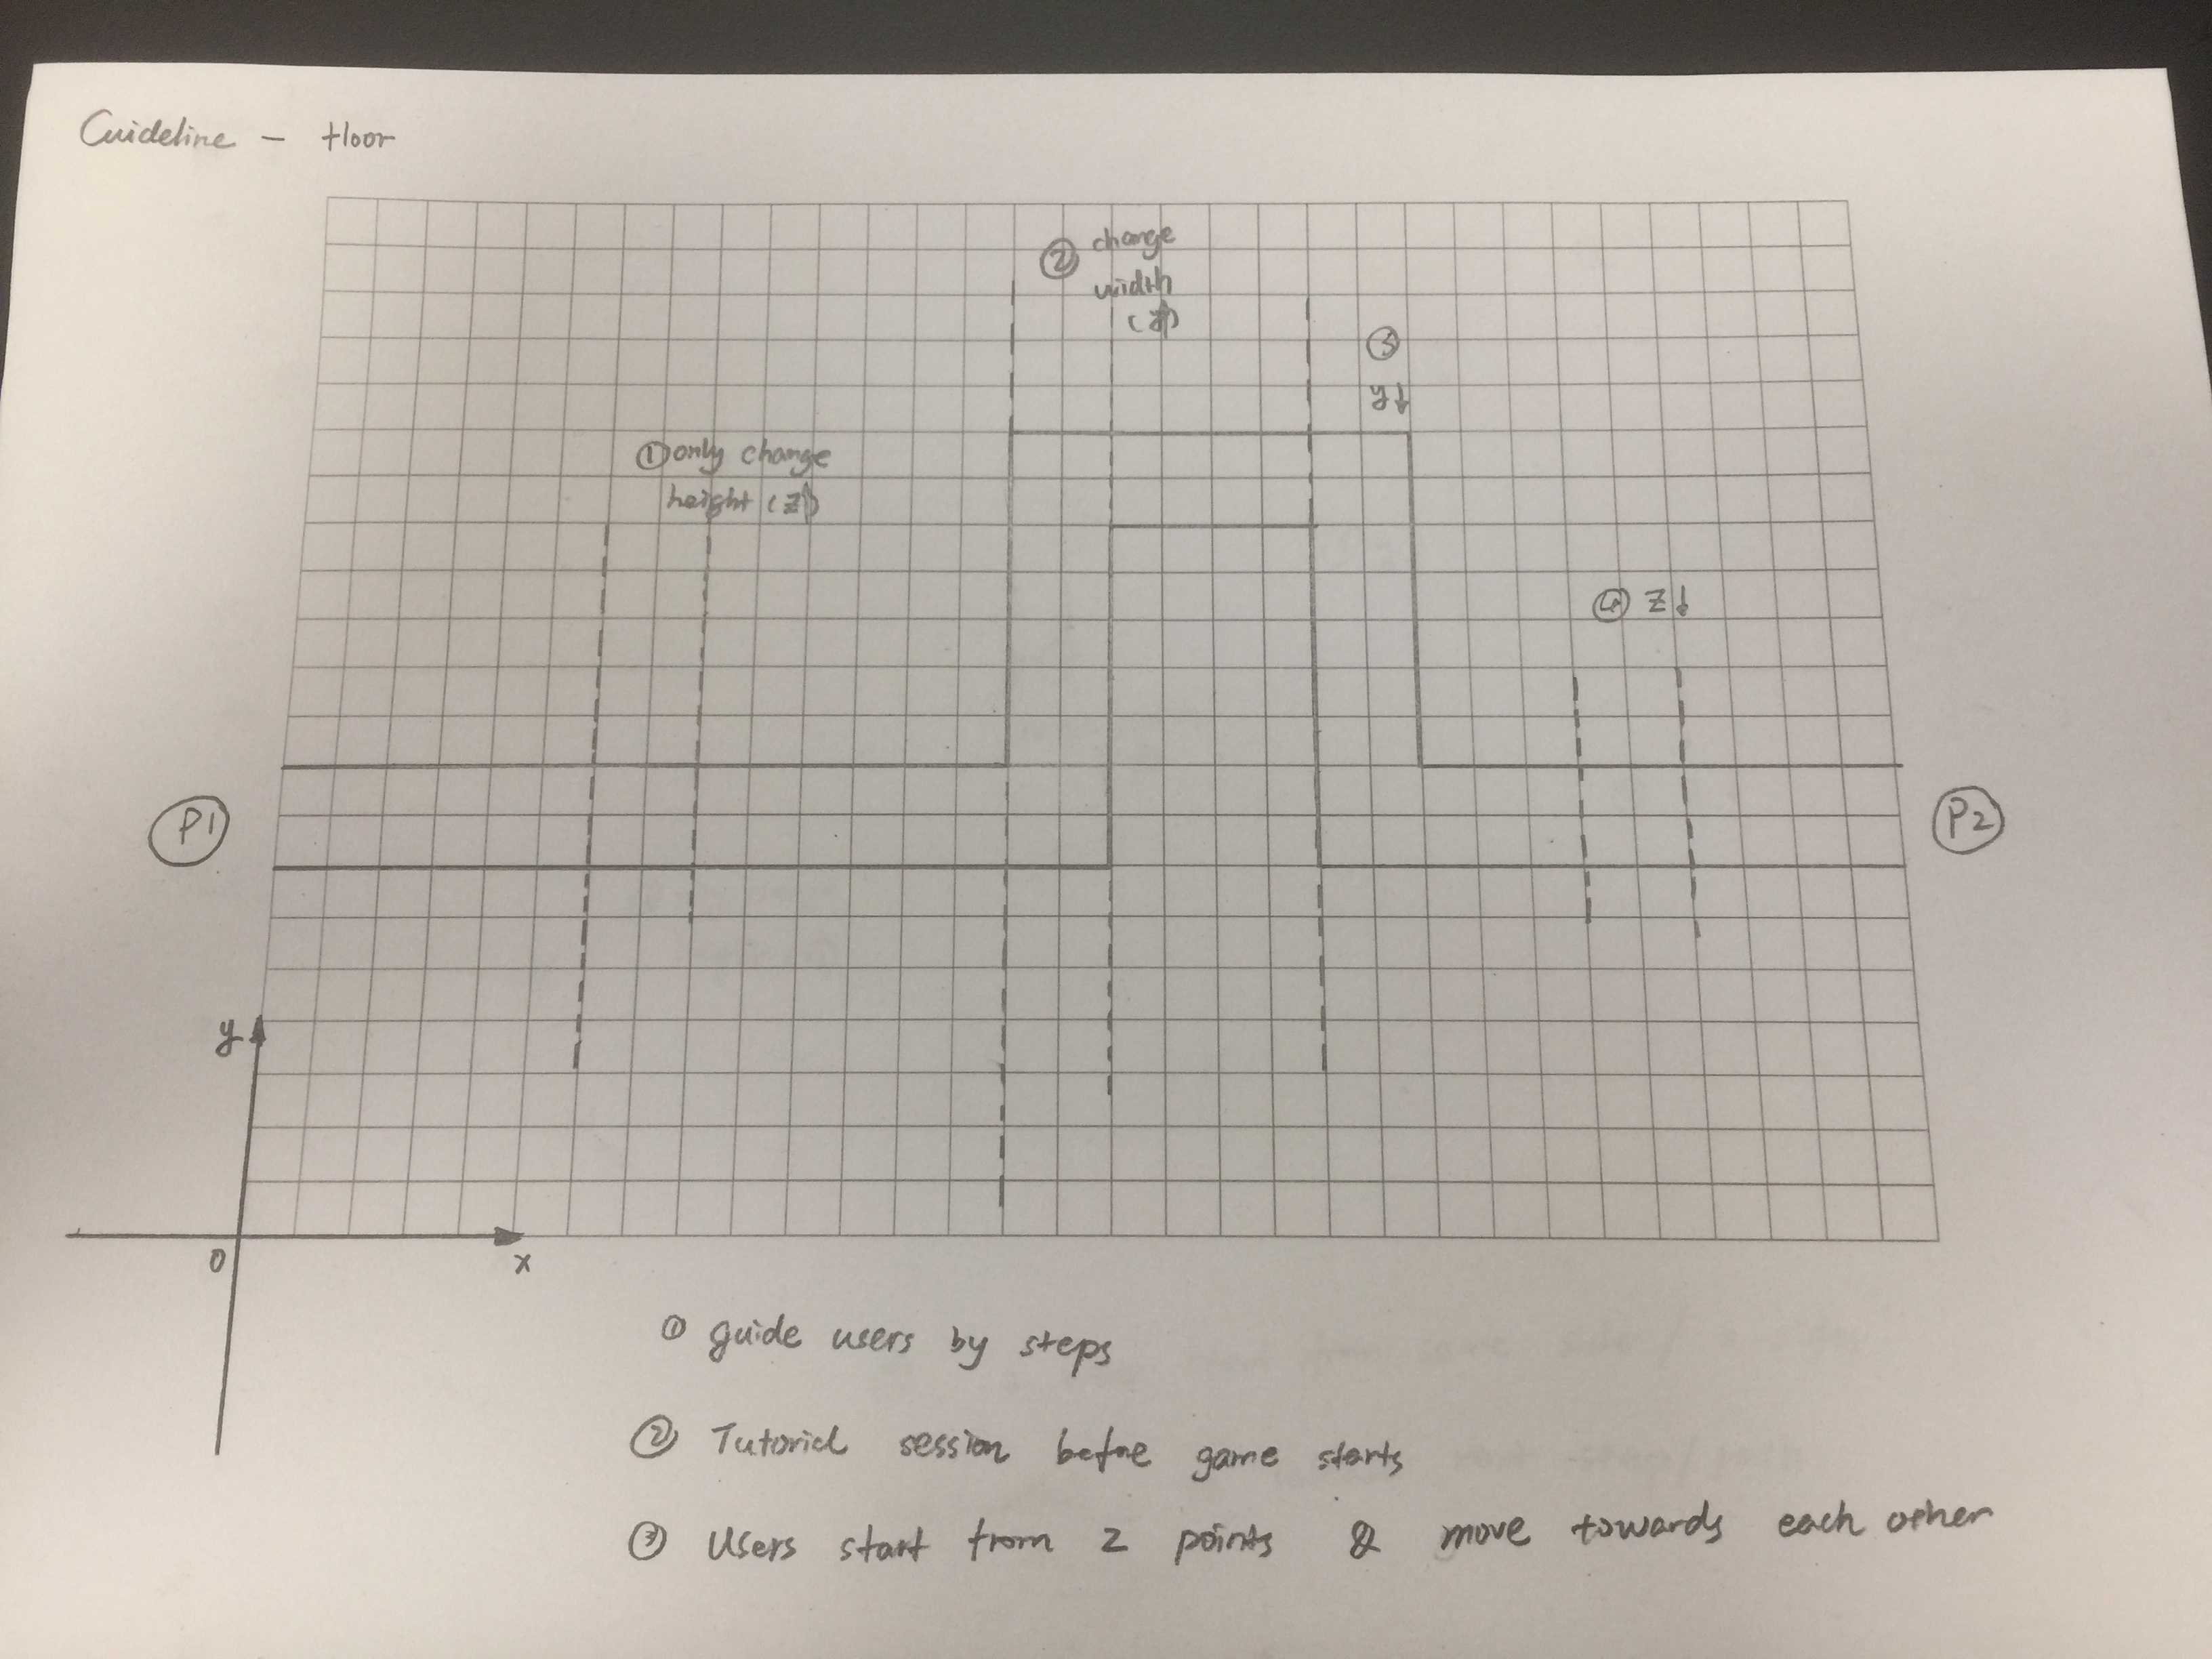 Guideline - floor
② change
width
③
y↓
① only change
height (z↑)
④ z↓
P1
P2
y
0
x
① guide users by steps
② Tutorial session before game starts
③ Users start from 2 points & move towards each other